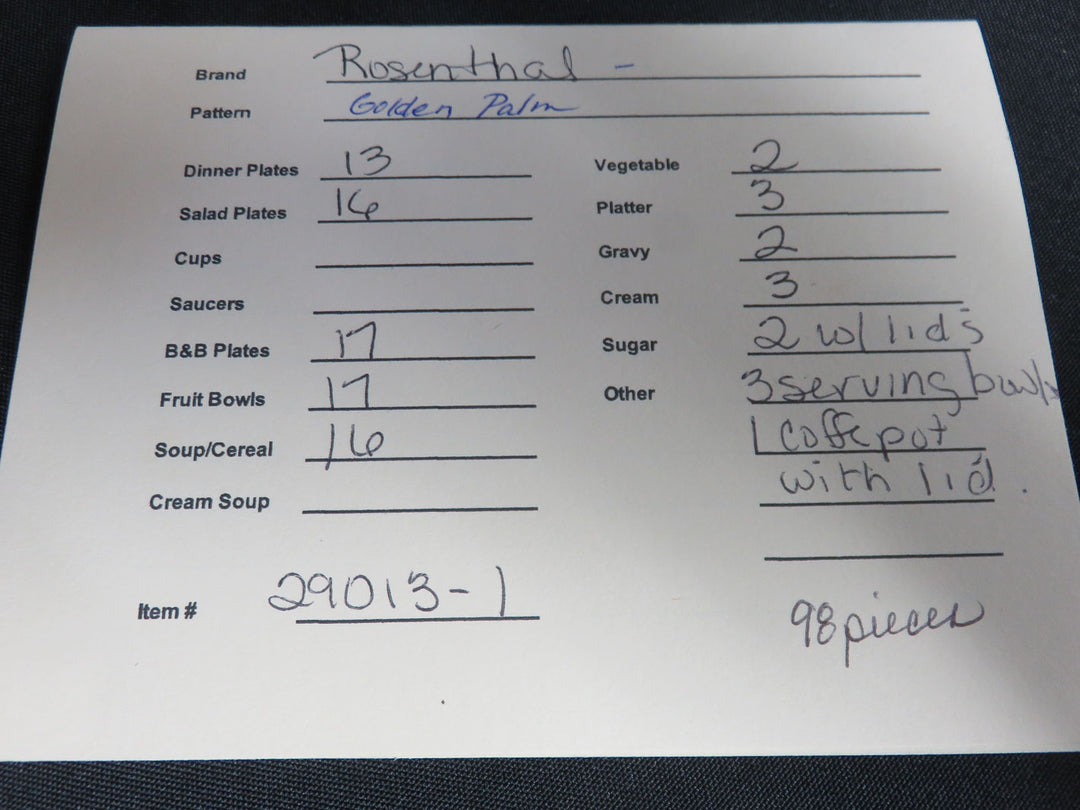 Brand Rosenthal -
Pattern Golden Palm
Dinner Plates 13
Salad Plates 16
Cups
Saucers
B&B Plates 17
Fruit Bowls 17
Soup/Cereal 16
Cream Soup
Vegetable 2
Platter 3
Gravy 2
Cream 3
Sugar 2 w/ lids
Other 3 serving bowls
1 Coffe pot
with lid.
Item # 29013-1
98 pieces